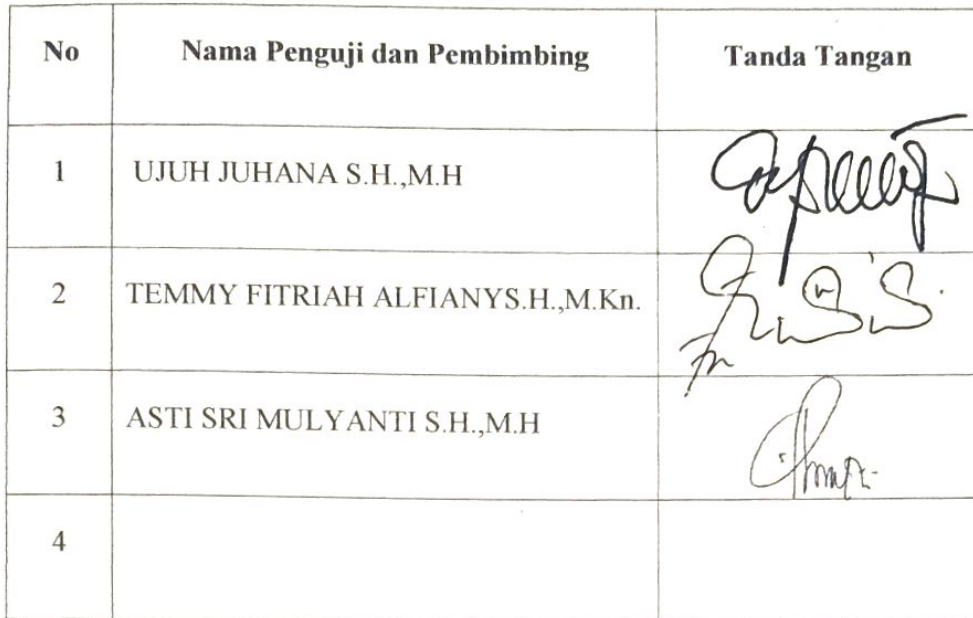 No Nama Penguji dan Pembimbing Tanda Tangan
1 UJUH JUHANA S.H.,M.H
2 TEMMY FITRIAH ALFIANYS.H.,M.Kn.
3 ASTI SRI MULYANTI S.H.,M.H
4